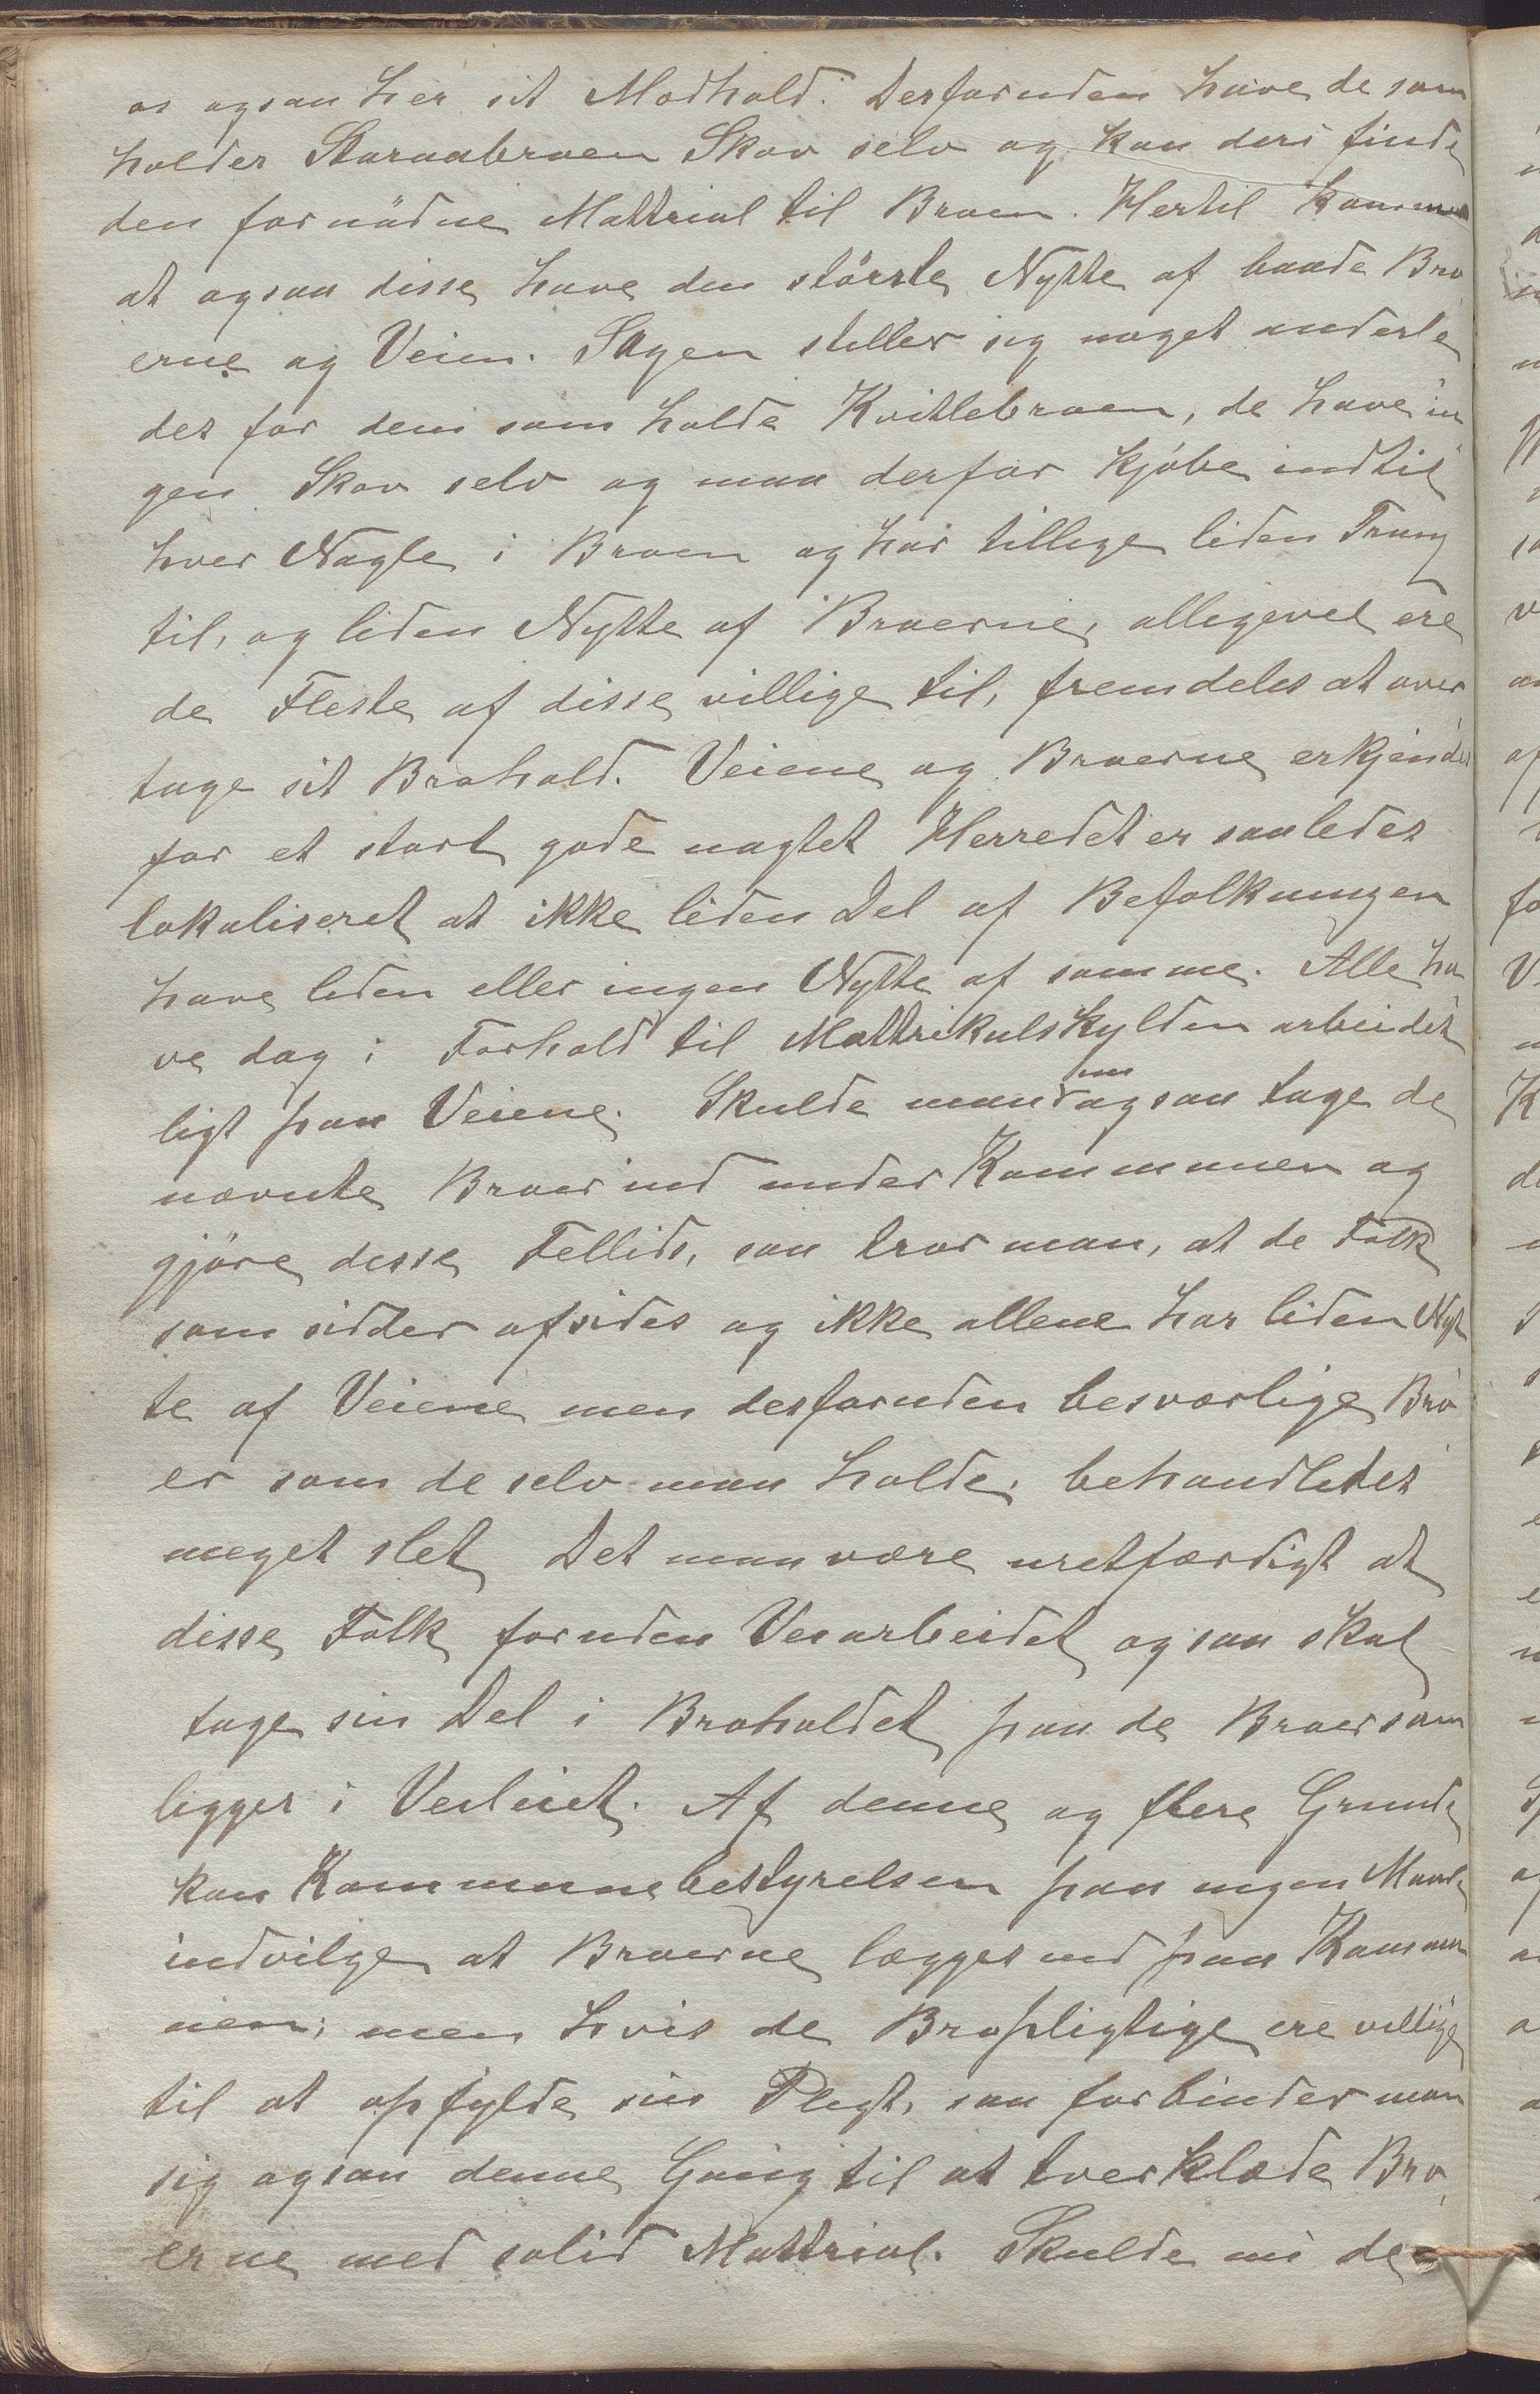 os ogsaa her sit Modhold. Desforuden have de som
holder Storaabroen Skov selv og kan deri finde
den fornødne Mattrial til Broen. Hertil Kommer
at ogsaa disse have den største Nytte af baade Bro
erne og Veien. Sagen stiller sig noget anderle
des for dem som holde Kvitlebroen, de have in
gen Skov selv og maa derfor kjøbe indtil
hver Nagle i Broen og har tillige liden Trang
til, og liden Nytte af Broerne, alligevel ere
de Fleste af disse villige til, fremdeles at over
tage sit Brohold. Veiene og Broerne erkjendes
for et stort gode uagtet Herredet er saaledes
lokaliseret at ikke liden Del af Befolkningen
have liden eller ingen Nytte af samme. Alle ha
ve dog i Forhold til Mattrikulskylden arbeidet
ligt paa Veiene. Skulde man nu ogsaa tage de
nævnte Broer ind under Kommunen og
gjøre desse Fellids, saa tror man, at de Folk
som sidder afsides og ikke allene har liden Nyt
te af Veiene men desforuden besværlige Bro
er som de selv maa holde, behandledes
meget slet. Det maa være uretfærdigt at
disse Folk foruden Veiarbeidet ogsaa skal
tage sin Del i Broholdet paa de Broer som
ligger i Veileiet. Af denne og flere Grunde
kan Kommunebestyrelsen paa ingen Maade
indvilge at Broerne lægges ind paa Kommu
nen; men hvis de Bropligtige ere villige
til at opfylde sin Pligt, saa forbinder man
sig ogsaa denne Gang til at tverklæde Bro
erne med solid Mattrial. Skulde nu de